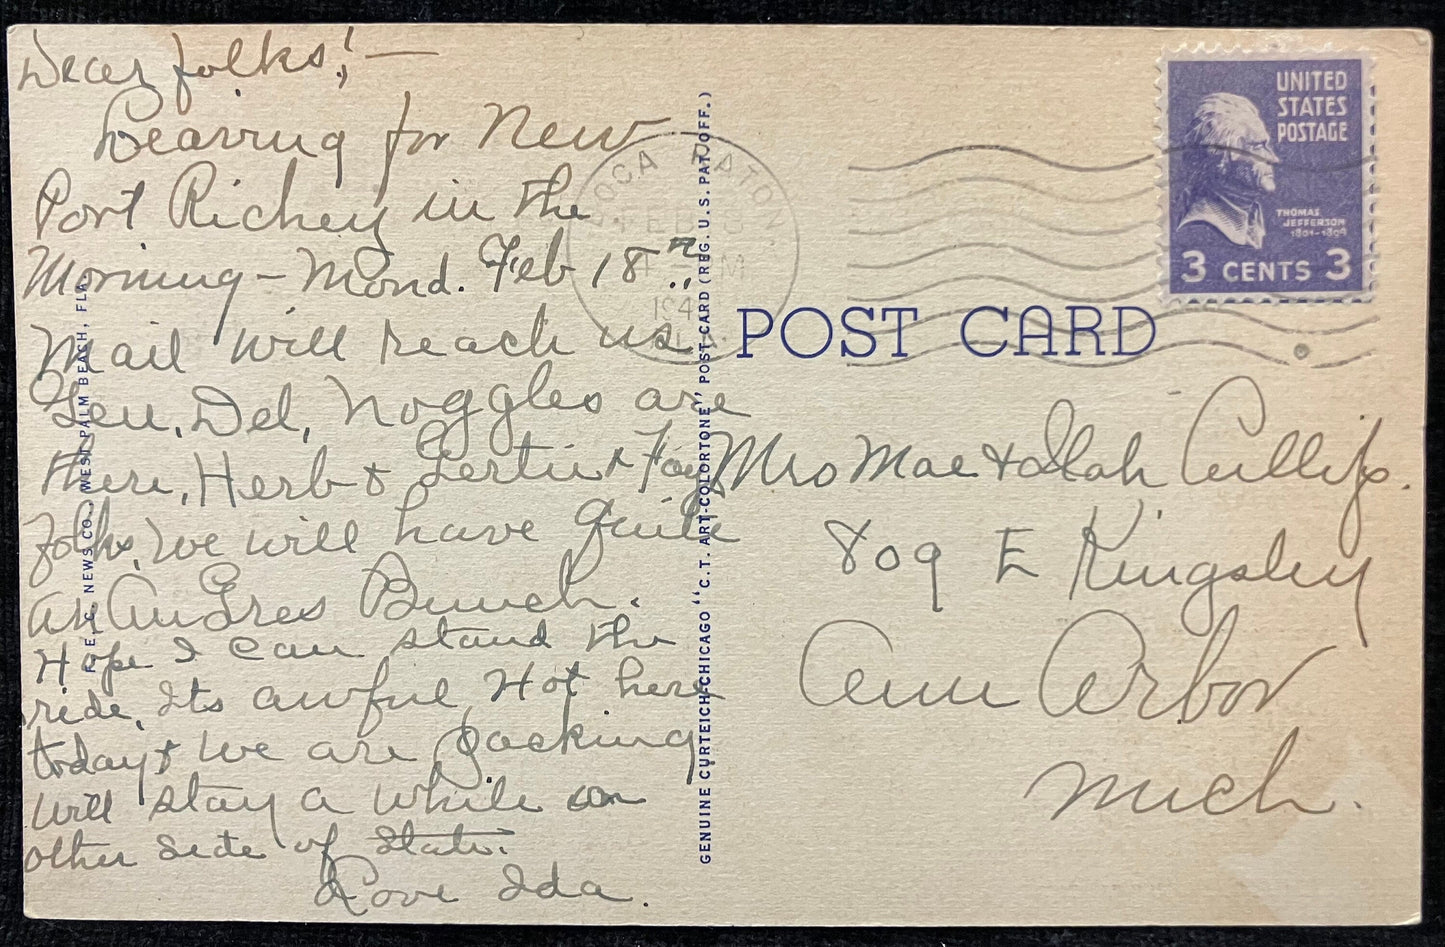 Dear folks!—
Leaving for New
Port Richey in the
Morning - Mond. Feb 18th
Mail will reach us
Gen. Del, Noggles are
there, Herb & Gertie & Fay
folks, we will have quite
an Bunch.
Hope I can stand the
ride. Its awful Hot here
today & we are packing
will stay a while on
other side of State.
Love Ida.
F. E. C. NEWS CO., WEST PALM BEACH, FLA.
GENUINE CURTEICH-CHICAGO "C.T. ART-COLORTONE" POST CARD (REG. U.S. PAT. OFF.)
BOCA RATON
FEB
M
194
FLA.
UNITED
STATES
POSTAGE
THOMAS
JEFFERSON
1801-1809
3 CENTS 3
POST CARD
Mrs Mae & Ilah Cullip.
809 E Kingsley
Ann Arbor
Mich.